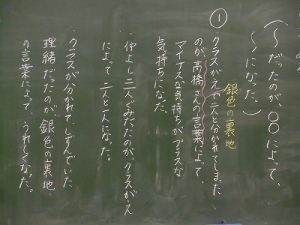 (〜だったのが、〇〇によって、
〜になった。)
銀色の裏地
①クラスがえで二人と分かれてしまった
のが、高橋さんの言葉によって、
マイナスな気持ちがプラスな
気持ちになった。
仲よし三人ぐみだったのが、クラスがえ
によって二人と一人になった。
クラスが分かれて、しずんでいた
理緒だったのが、銀色の裏地
の言葉によって、うれしくなった。